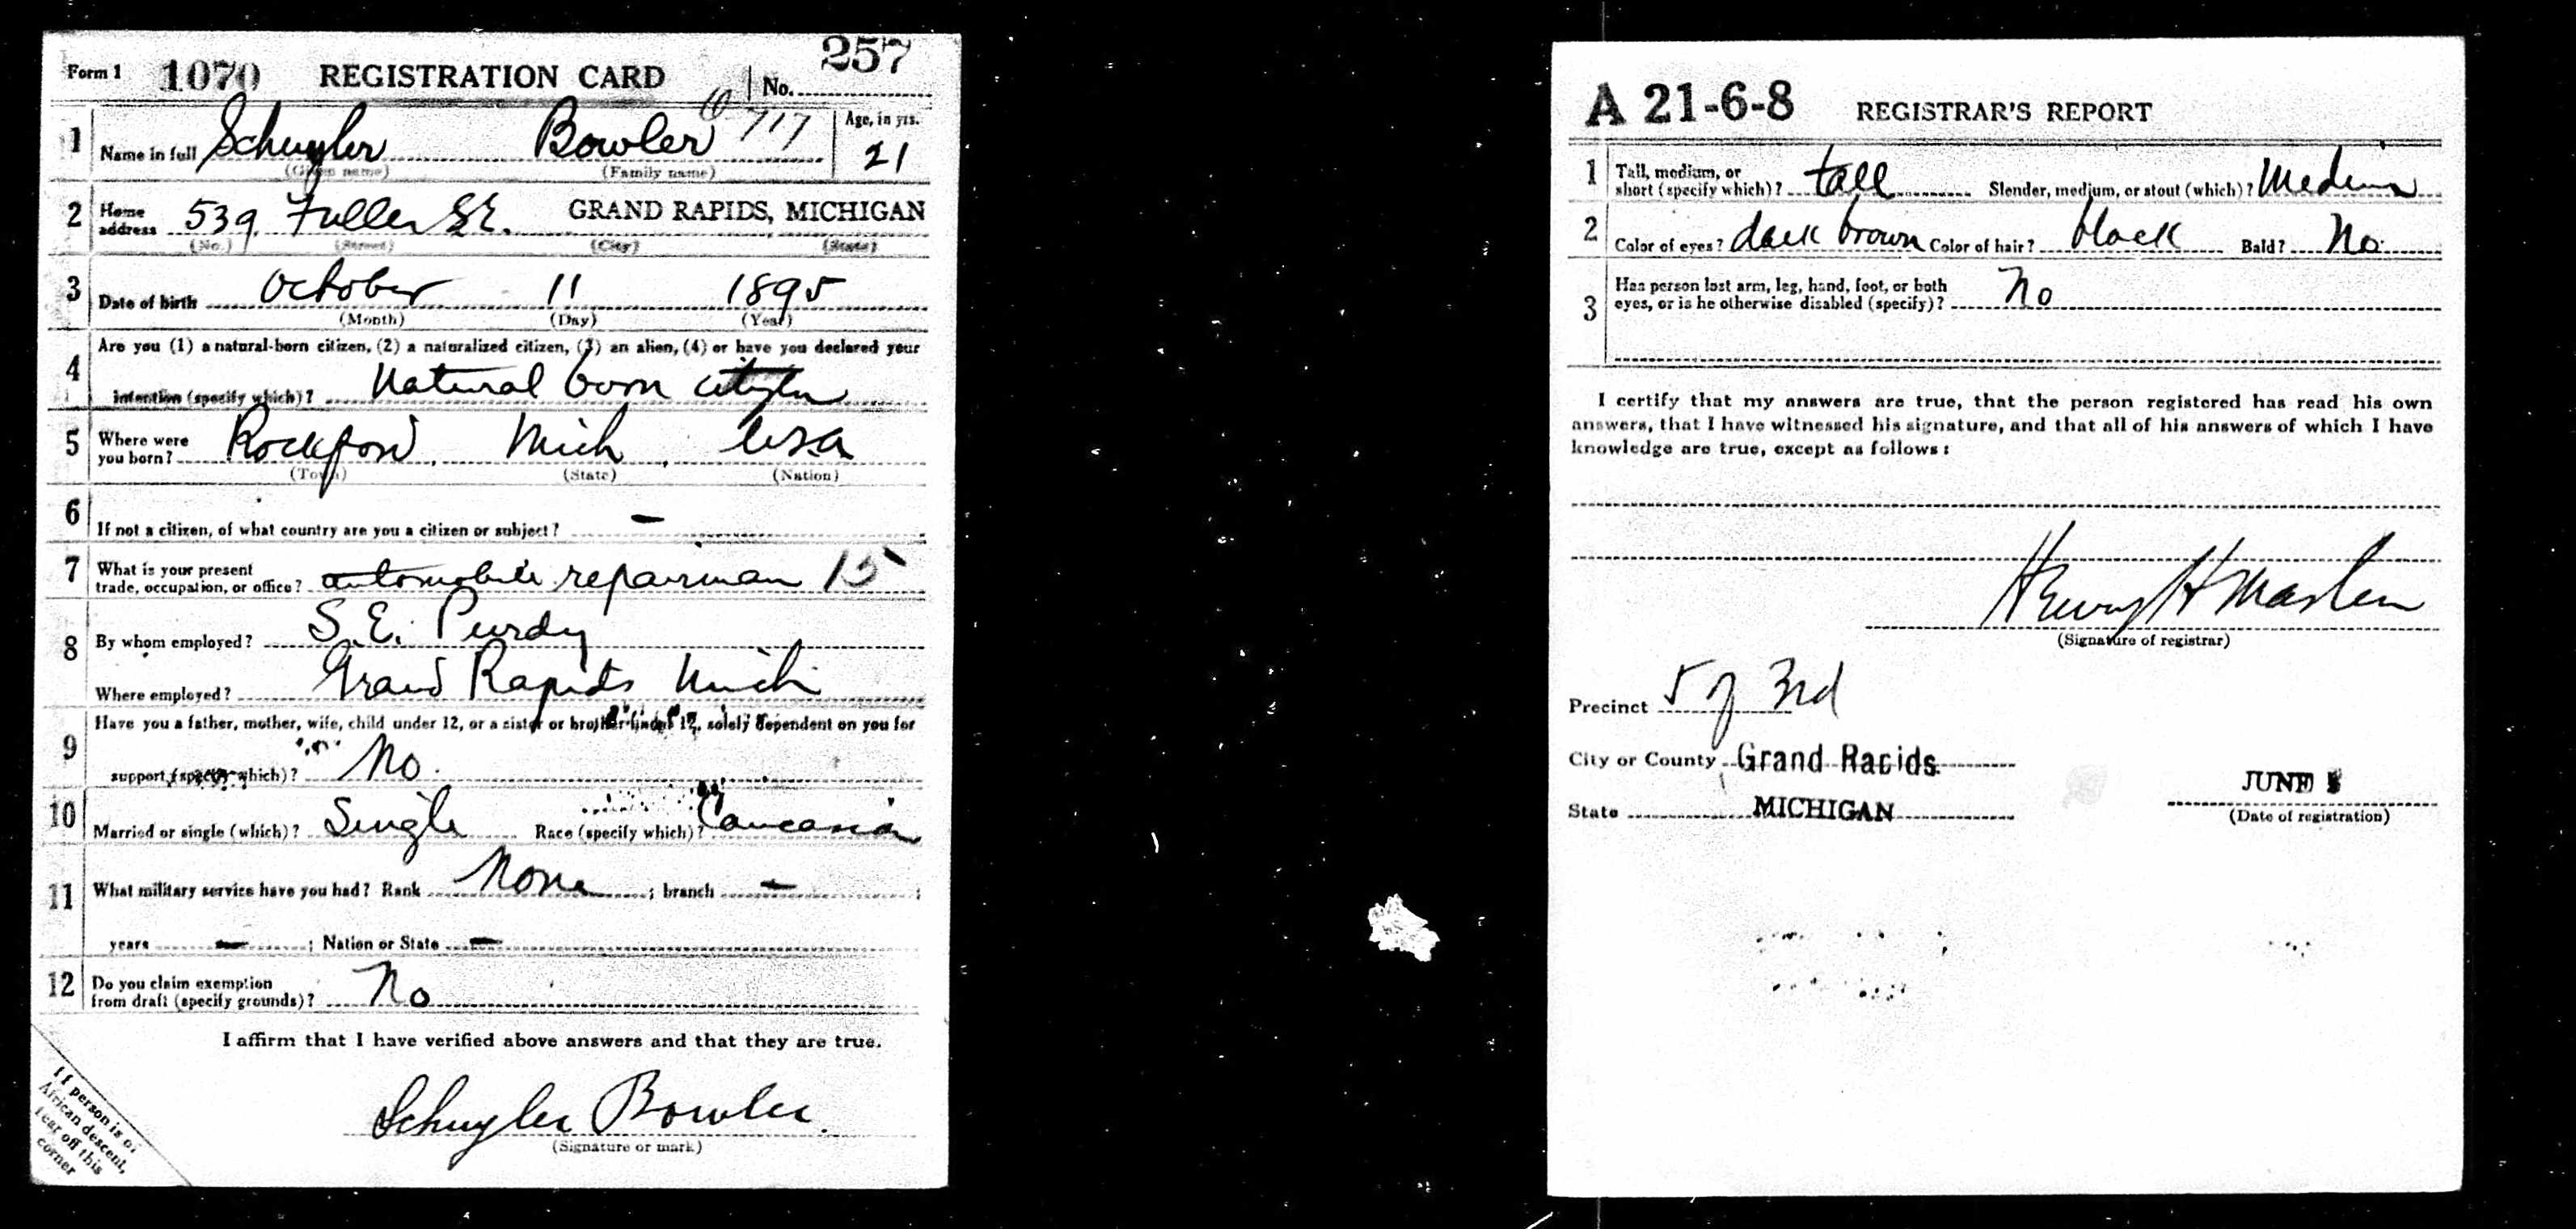 257
Form 1 1070 REGISTRATION CARD No.
717
1 Name in full Schuyler Bowler Age, in yrs. 21
(Given name) (Family name)
2 Home address 539 Fuller S.E. GRAND RAPIDS, MICHIGAN
(No.) (Street) (City) (State)
3 Date of birth October 11 1895
(Month) (Day) (Year)
4 Are you (1) a natural-born citizen, (2) a naturalized citizen, (3) an alien, (4) or have you declared your
intention (specify which)? Natural born citizen
5 Where were you born? Rockford, Mich, USA
(Town) (State) (Nation)
6 If not a citizen, of what country are you a citizen or subject? -
7 What is your present trade, occupation, or office? automobile repairman 15
8 By whom employed? S.E. Purdy
Where employed? Grand Rapids Mich
9 Have you a father, mother, wife, child under 12, or a sister or brother under 12, solely dependent on you for
support (specify which)? No.
10 Married or single (which)? Single Race (specify which)? Caucasian
11 What military service have you had? Rank None ; branch - ;
years - ; Nation or State -
12 Do you claim exemption from draft (specify grounds)? No
I affirm that I have verified above answers and that they are true.
Schuyler Bowler.
(Signature or mark)
If person is of
African descent,
tear off this
corner
A 21-6-8 REGISTRAR'S REPORT
1 Tall, medium, or short (specify which)? tall Slender, medium, or stout (which)? Medium
2 Color of eyes? dark brown Color of hair? black Bald? No
3 Has person lost arm, leg, hand, foot, or both
eyes, or is he otherwise disabled (specify)? No
I certify that my answers are true, that the person registered has read his own
answers, that I have witnessed his signature, and that all of his answers of which I have
knowledge are true, except as follows:
Henry H
(Signature of registrar)
Precinct 5 of 3rd
City or County Grand Rapids
State MICHIGAN
JUNE 5
(Date of registration)